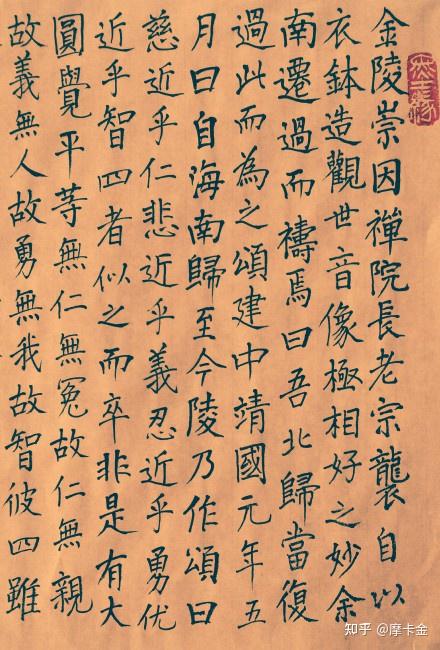 金陵崇因禪院長老宗襲自以
衣鉢造觀世音像極相好之妙余
南遷過而禱焉曰吾北歸當復
過此而為之頌建中靖國元年五
月日自海南歸至今陵乃作頌曰
慈近乎仁悲近乎義忍近乎勇优
近乎智四者似之而卒非是有大
圓覺平等無仁無冤故仁無親
故義無人故勇無我故智彼四雖
知乎 @摩卡金